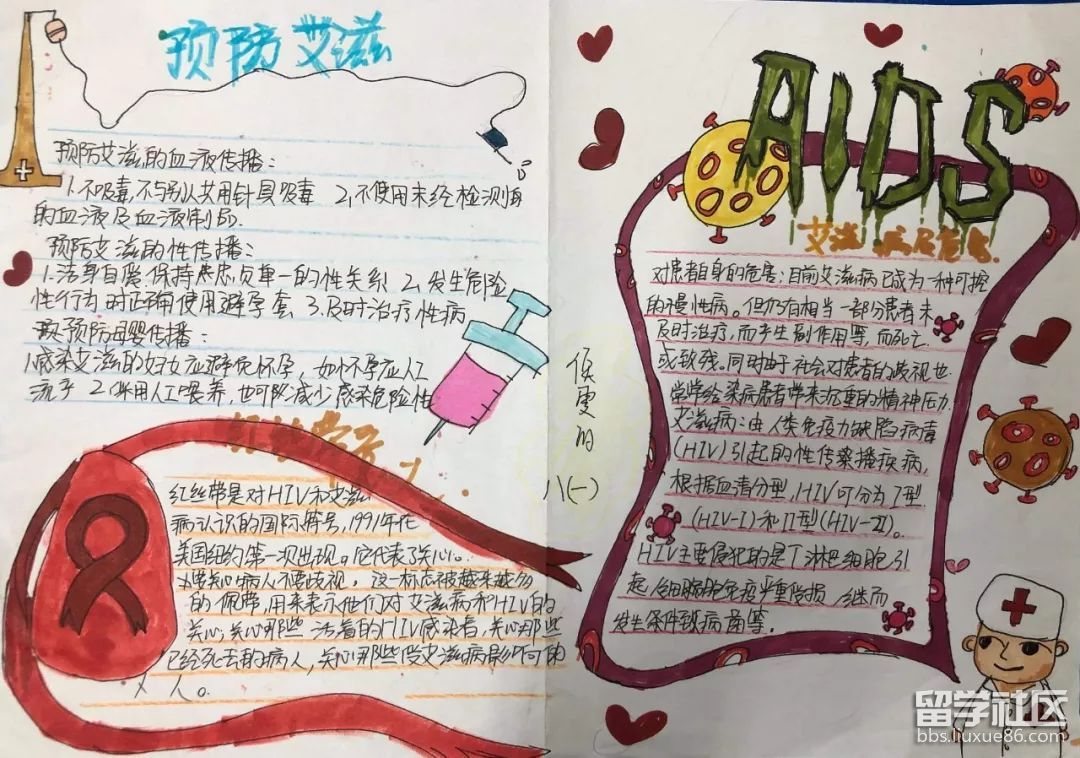 预防艾滋
预防艾滋的血液传播：
1.不吸毒,不与别人共用针具吸毒 2,不使用未经检测
的血液及血液制品.
预防艾滋的性传播：
1.洁身自爱,保持 单一的性关系 2、发生危险
性行为时正确使用避孕套 3.及时治疗性病
预防母婴传播：
1.感染艾滋的妇女应避免怀孕，如怀孕应人工
流产 2.采用人工喂养，也可 减少感染危险性
红丝带是对HIV和艾滋
病认识的国际符号,1991年在
美国纽约第一次出现。它代表了关心。
要关心病人不要歧视，这一标志被越来越多
的佩带,用来表示他们对艾滋病和HIV的
关心,关心那些活着的HIV感染者,关心那些
已经死去的病人，关心那些受艾滋病影响的
人。
八(一)
AIDS
艾滋病及危害
对患者自身的危害：目前艾滋病已成为一种可控
的慢性病。但仍有相当一部分患者未
及时治疗,而产生副作用等,而死亡
或致残。同时由于社会对患者的歧视也
常常给 病患者带来沉重的精神压力.
艾滋病：由人类免疫力缺陷病毒
(HIV)引起的性传染播疾病,
根据血清分型,HIV可分为I型
(HIV-I)和II型(HIV-II)。
HIV主要侵犯的是T淋巴细胞,引
起 细胞免疫严重 损，继而
发生条件致病菌等.
留学社区
bbs.liuxue86.com